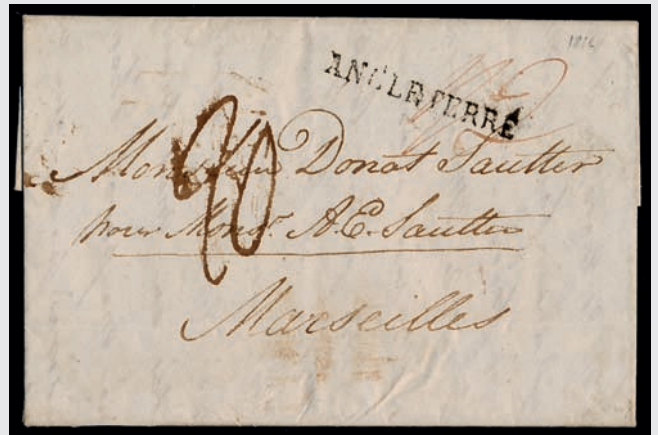 ANGLETERRE
1/2
Monsieur Donat Sautter
pour Monsr. A.E. Sautter
Marseilles